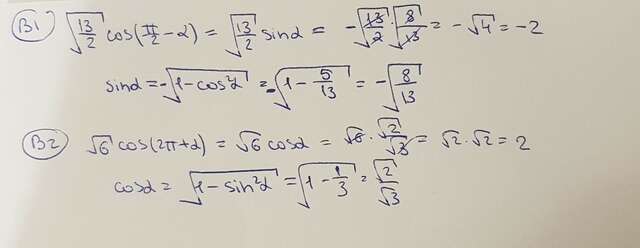 B1 √(13/2) cos(π/2 - α) = √(13/2) sinα = -√(13/2) · √(8/13) = -√4 = -2
sinα = -√(1-cos²α) = -√(1 - 5/13) = -√(8/13)
B2 √6 cos(2π+α) = √6 cosα = √6 · √2/√3 = √2 · √2 = 2
cosα = √(1-sin²α) = √(1 - 1/3) = √2/√3